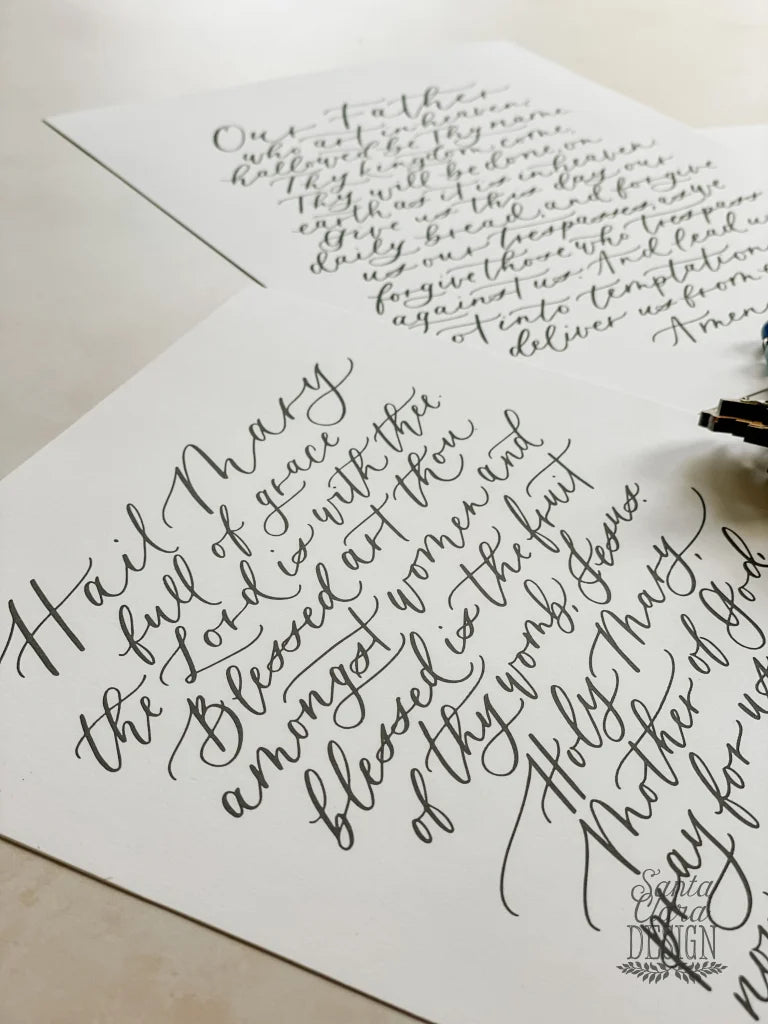 Our Father
who art in heaven,
hallowed be Thy name
Thy kingdom come,
Thy will be done, on
earth as it is in heaven.
Give us this day our
daily bread, and forgive
us our trespasses, as we
forgive those who trespass
against us. And lead u
ot into temptation
deliver us from e
Amen
Hail Mary
full of grace
the Lord is with thee.
Blessed art thou
amongst women and
blessed is the fruit
of thy womb, Jesus.
Holy Mary,
Mother of God,
pray for us
now
Santa
Clara
DESIGN